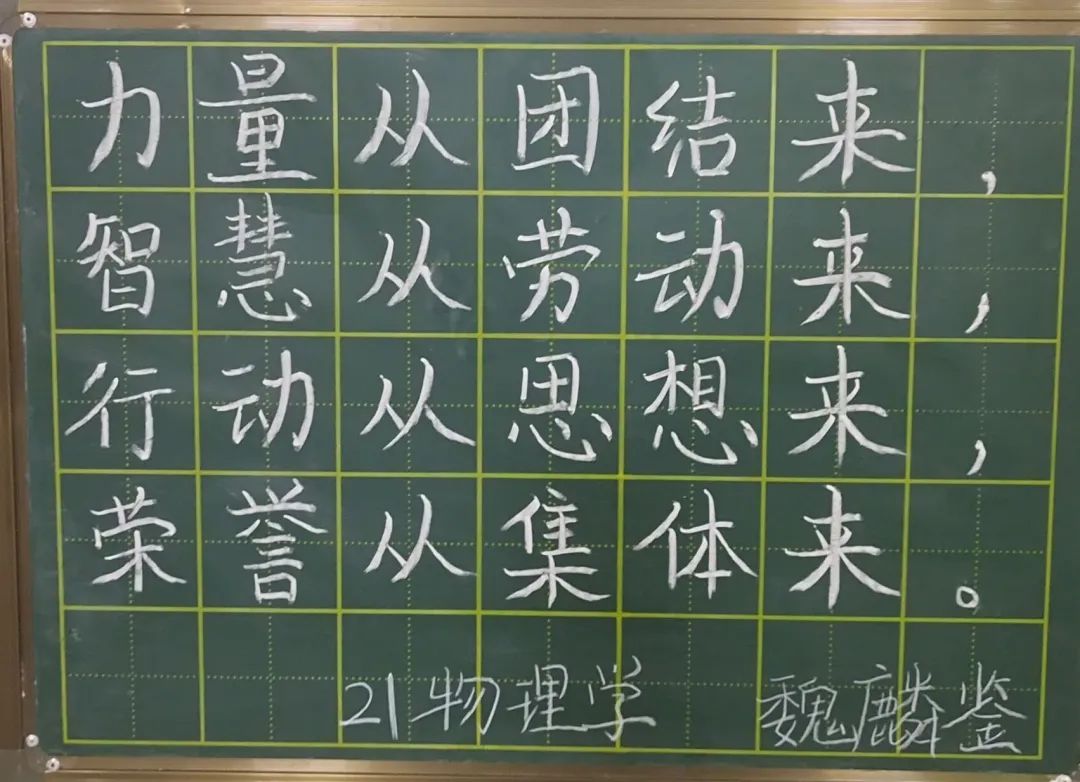 力量从团结来，
智慧从劳动来，
行动从思想来，
荣誉从集体来。
21物理学 魏麟鉴